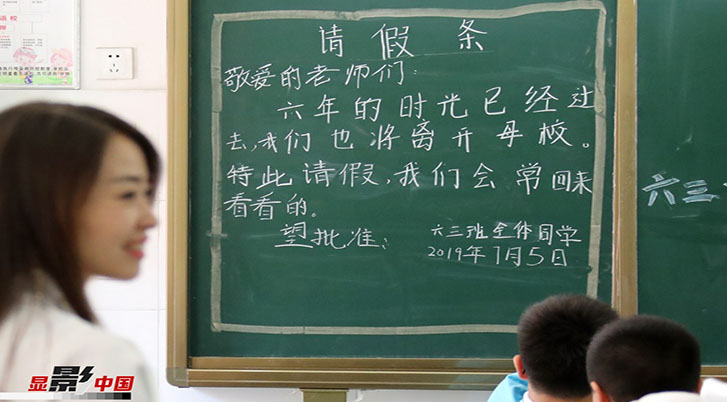 请假条
敬爱的老师们:
六年的时光已经过
去,我们也将离开母校。
特此请假,我们会常回来
看看的。
望批准:
六三班全体同学
2019年7月5日
六三
显影中国